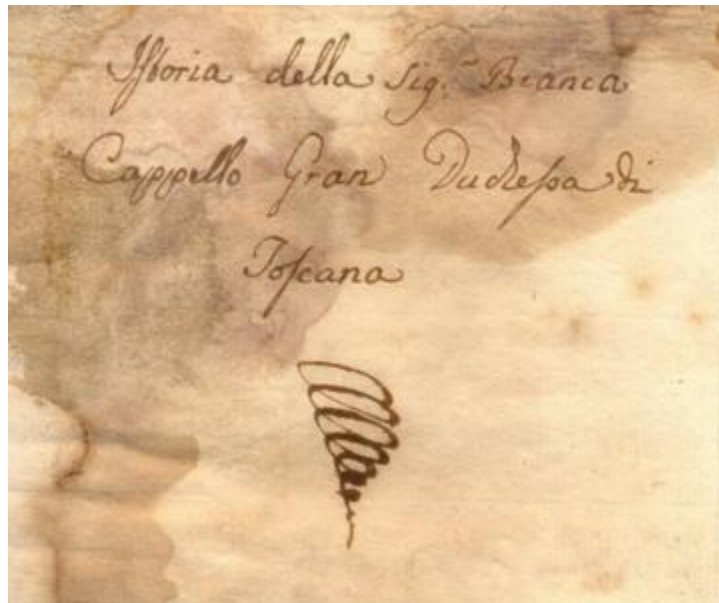 Istoria della Sig.ra Bianca
Cappello Gran Duchessa di
Toscana